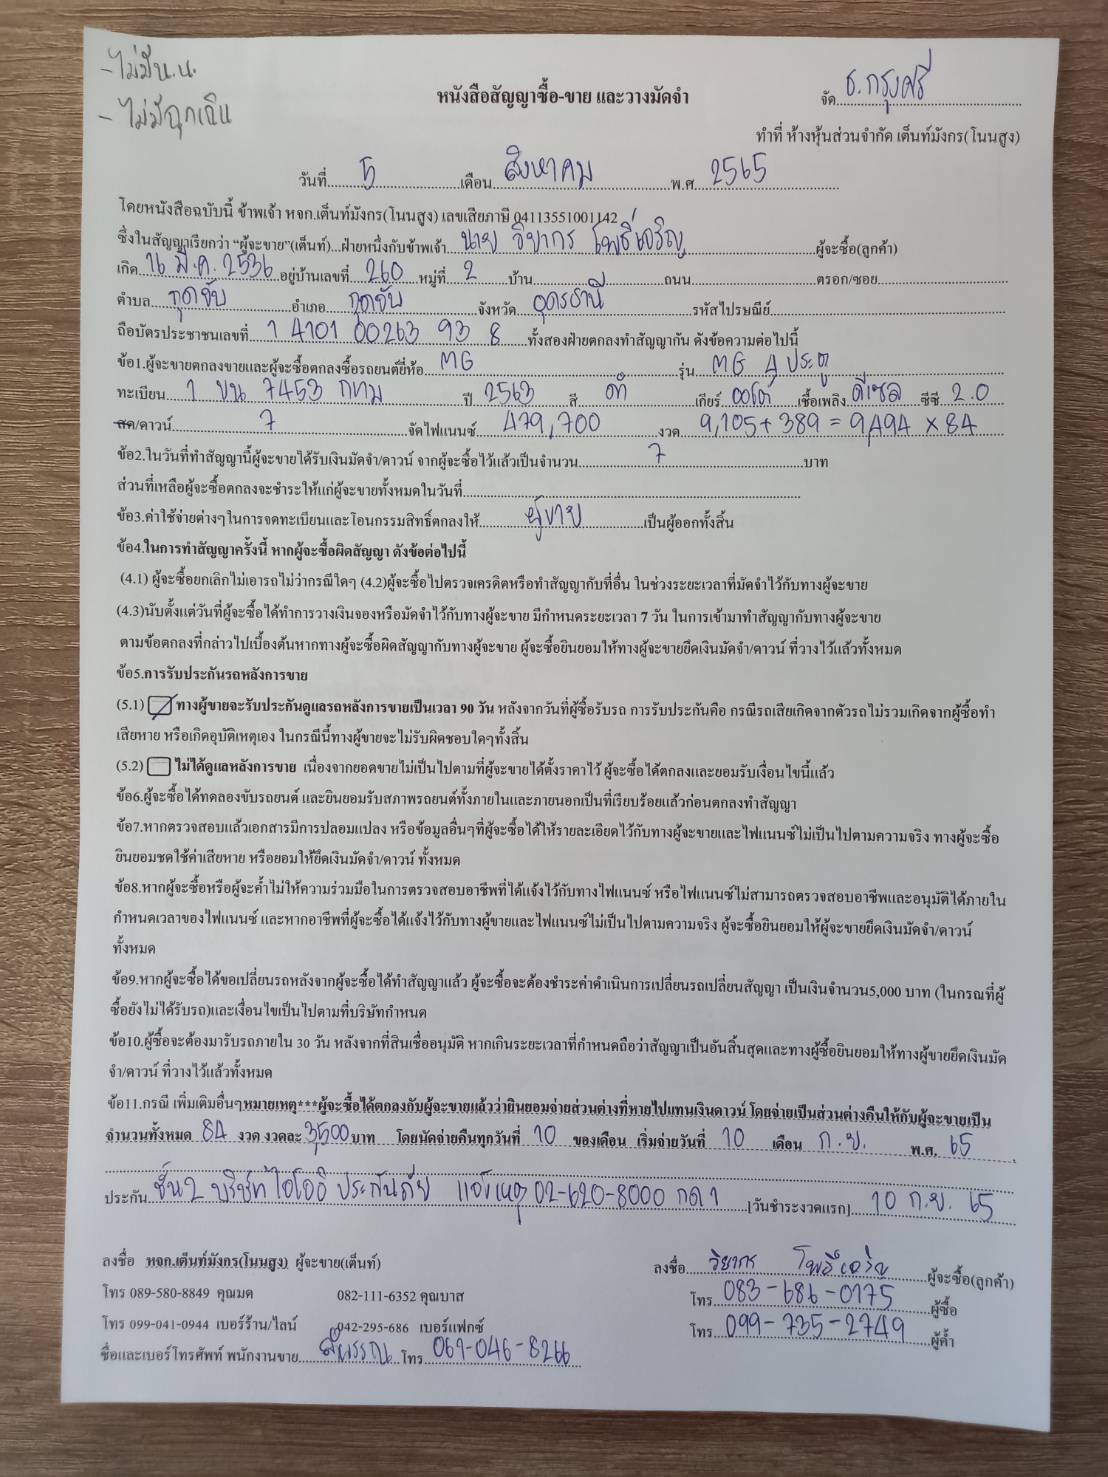 - ไม่มีน.น.
- ไม่มีฉุกเฉิน
หนังสือสัญญาซื้อ-ขาย และวางมัดจำ
จัด ธ.กรุงศรี
ทำที่ ห้างหุ้นส่วนจำกัด เต็นท์มังกร(โนนสูง)
วันที่ 5 เดือน สิงหาคม พ.ศ. 2565
โดยหนังสือฉบับนี้ ข้าพเจ้า หจก.เต็นท์มังกร(โนนสูง) เลขเสียภาษี 04113551001142
ซึ่งในสัญญาเรียกว่า “ผู้จะขาย”(เต็นท์)...ฝ่ายหนึ่งกับข้าพเจ้า นาย วิยากร โพธิ์เจริญ ผู้จะซื้อ(ลูกค้า)
เกิด 16 มี.ค. 2536 อยู่บ้านเลขที่ 260 หมู่ที่ 2 บ้าน ถนน ตรอก/ซอย
ตำบล กุดจับ อำเภอ กุดจับ จังหวัด อุดรธานี รหัสไปรษณีย์
ถือบัตรประชาชนเลขที่ 1 4101 00263 93 8 ทั้งสองฝ่ายตกลงทำสัญญากัน ดังข้อความต่อไปนี้
ข้อ1.ผู้จะขายตกลงขายและผู้จะซื้อตกลงซื้อรถยนต์ยี่ห้อ MG รุ่น MG 4 ประตู
ทะเบียน 1 ขน 7453 กทม ปี 2563 สี ดำ เกียร์ ออโต้ เชื้อเพลิง ดีเซล ซีซี 2.0
สด/ดาวน์ 7 จัดไฟแนนซ์ 479,700 งวด 9,105+389 = 9,494 x 84
ข้อ2.ในวันที่ทำสัญญานี้ผู้จะขายได้รับเงินมัดจำ/ดาวน์ จากผู้จะซื้อไว้แล้วเป็นจำนวน 7 บาท
ส่วนที่เหลือผู้จะซื้อตกลงจะชำระให้แก่ผู้จะขายทั้งหมดในวันที่
ข้อ3.ค่าใช้จ่ายต่างๆในการจดทะเบียนและโอนกรรมสิทธิ์ตกลงให้ ผู้ขาย เป็นผู้ออกทั้งสิ้น
ข้อ4.ในการทำสัญญาครั้งนี้ หากผู้จะซื้อผิดสัญญา ดังข้อต่อไปนี้
(4.1) ผู้จะซื้อยกเลิกไม่เอารถไม่ว่ากรณีใดๆ (4.2)ผู้จะซื้อไปตรวจเครดิตหรือทำสัญญากับที่อื่น ในช่วงระยะเวลาที่มัดจำไว้กับทางผู้จะขาย
(4.3)นับตั้งแต่วันที่ผู้จะซื้อได้ทำการวางเงินจองหรือมัดจำไว้กับทางผู้จะขาย มีกำหนดระยะเวลา 7 วัน ในการเข้ามาทำสัญญากับทางผู้จะขาย
ตามข้อตกลงที่กล่าวไปเบื้องต้นหากทางผู้จะซื้อผิดสัญญากับทางผู้จะขาย ผู้จะซื้อยินยอมให้ทางผู้จะขายยึดเงินมัดจำ/ดาวน์ ที่วางไว้แล้วทั้งหมด
ข้อ5.การรับประกันรถหลังการขาย
(5.1) ทางผู้ขายจะรับประกันดูแลรถหลังการขายเป็นเวลา 90 วัน หลังจากวันที่ผู้ซื้อรับรถ การรับประกันคือ กรณีรถเสียเกิดจากตัวรถไม่รวมเกิดจากผู้ซื้อทำ
เสียหาย หรือเกิดอุบัติเหตุเอง ในกรณีนี้ทางผู้จะขายจะไม่รับผิดชอบใดๆทั้งสิ้น
(5.2) ไม่ได้ดูแลหลังการขาย เนื่องจากยอดขายไม่เป็นไปตามที่ผู้จะขายได้ตั้งราคาไว้ ผู้จะซื้อได้ตกลงและยอมรับเงื่อนไขนี้แล้ว
ข้อ6.ผู้จะซื้อได้ทดลองขับรถยนต์ และยินยอมรับสภาพรถยนต์ทั้งภายในและภายนอกเป็นที่เรียบร้อยแล้วก่อนตกลงทำสัญญา
ข้อ7.หากตรวจสอบแล้วเอกสารมีการปลอมแปลง หรือข้อมูลอื่นๆที่ผู้จะซื้อได้ให้รายละเอียดไว้กับทางผู้จะขายและไฟแนนซ์ไม่เป็นไปตามความจริง ทางผู้จะซื้อ
ยินยอมชดใช้ค่าเสียหาย หรือยอมให้ยึดเงินมัดจำ/ดาวน์ ทั้งหมด
ข้อ8.หากผู้จะซื้อหรือผู้จะค้ำไม่ให้ความร่วมมือในการตรวจสอบอาชีพที่ได้แจ้งไว้กับทางไฟแนนซ์ หรือไฟแนนซ์ไม่สามารถตรวจสอบอาชีพและอนุมัติได้ภายใน
กำหนดเวลาของไฟแนนซ์ และหากอาชีพที่ผู้จะซื้อได้แจ้งไว้กับทางผู้ขายและไฟแนนซ์ไม่เป็นไปตามความจริง ผู้จะซื้อยินยอมให้ผู้จะขายยึดเงินมัดจำ/ดาวน์
ทั้งหมด
ข้อ9.หากผู้จะซื้อได้ขอเปลี่ยนรถหลังจากผู้จะซื้อได้ทำสัญญาแล้ว ผู้จะซื้อจะต้องชำระค่าดำเนินการเปลี่ยนรถเปลี่ยนสัญญา เป็นเงินจำนวน5,000 บาท (ในกรณที่ผู้
ซื้อยังไม่ได้รับรถ)และเงื่อนไขเป็นไปตามที่บริษัทกำหนด
ข้อ10.ผู้ซื้อจะต้องมารับรถภายใน 30 วัน หลังจากที่สินเชื่ออนุมัติ หากเกินระยะเวลาที่กำหนดถือว่าสัญญาเป็นอันสิ้นสุดและทางผู้ซื้อยินยอมให้ทางผู้ขายยึดเงินมัด
จำ/ดาวน์ ที่วางไว้แล้วทั้งหมด
ข้อ11.กรณี เพิ่มเติมอื่นๆหมายเหตุ***ผู้จะซื้อได้ตกลงกับผู้จะขายแล้วว่ายินยอมจ่ายส่วนต่างที่หายไปแทนเงินดาวน์ โดยจ่ายเป็นส่วนต่างคืนให้กับผู้จะขายเป็น
จำนวนทั้งหมด 84 งวด งวดละ 3,500 บาท โดยนัดจ่ายคืนทุกวันที่ 10 ของเดือน เริ่มจ่ายวันที่ 10 เดือน ก.ย. พ.ศ. 65
ประกัน ชั้น2 บริษัทไอโออิ ประกันภัย แจ้งเหตุ 02-620-8000 กด 1 [วันชำระงวดแรก] 10 ก.ย. 65
ลงชื่อ หจก.เต็นท์มังกร(โนนสูง) ผู้จะขาย(เต็นท์)
ลงชื่อ วิยากร โพธิ์เจริญ ผู้จะซื้อ(ลูกค้า)
โทร 089-580-8849 คุณมด 082-111-6352 คุณบาส
โทร 083-686-0175 ผู้ซื้อ
โทร 099-041-0944 เบอร์ร้าน/ไลน์ 042-295-686 เบอร์แฟกซ์
โทร 099-735-2749 ผู้ค้ำ
ชื่อและเบอร์โทรศัพท์ พนักงานขาย โทร 061-046-8266